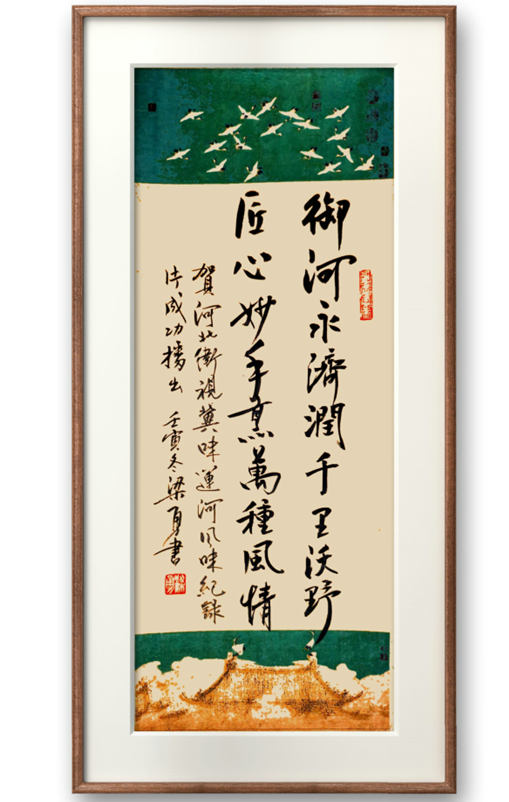 御河永濟潤千里沃野
匠心妙手烹萬種風情
賀河北衛視冀味運河風味紀錄
片成功播出 壬寅冬梁勇書